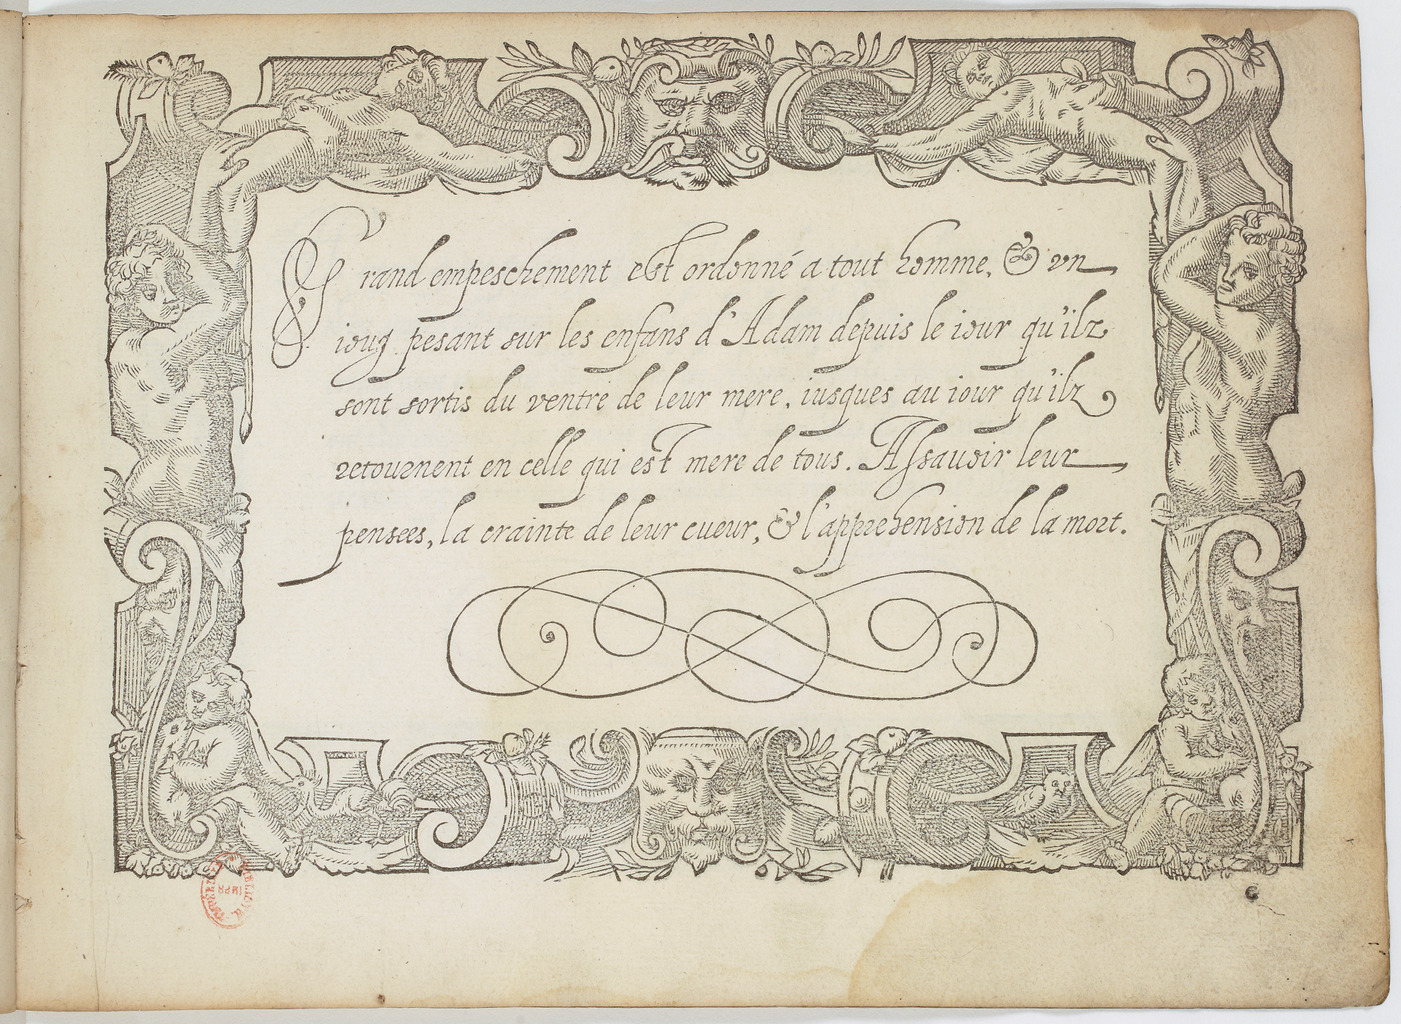 Grand empeschement est ordonné a tout homme, & vn
ioug pesant sur les enfans d'Adam depuis le iour qu'ilz
sont sortis du ventre de leur mere, iusques au iour qu'ilz
retournent en celle qui est mere de tous. Assauoir leur
pensees, la crainte de leur cueur, & l'apprehension de la mort.
G